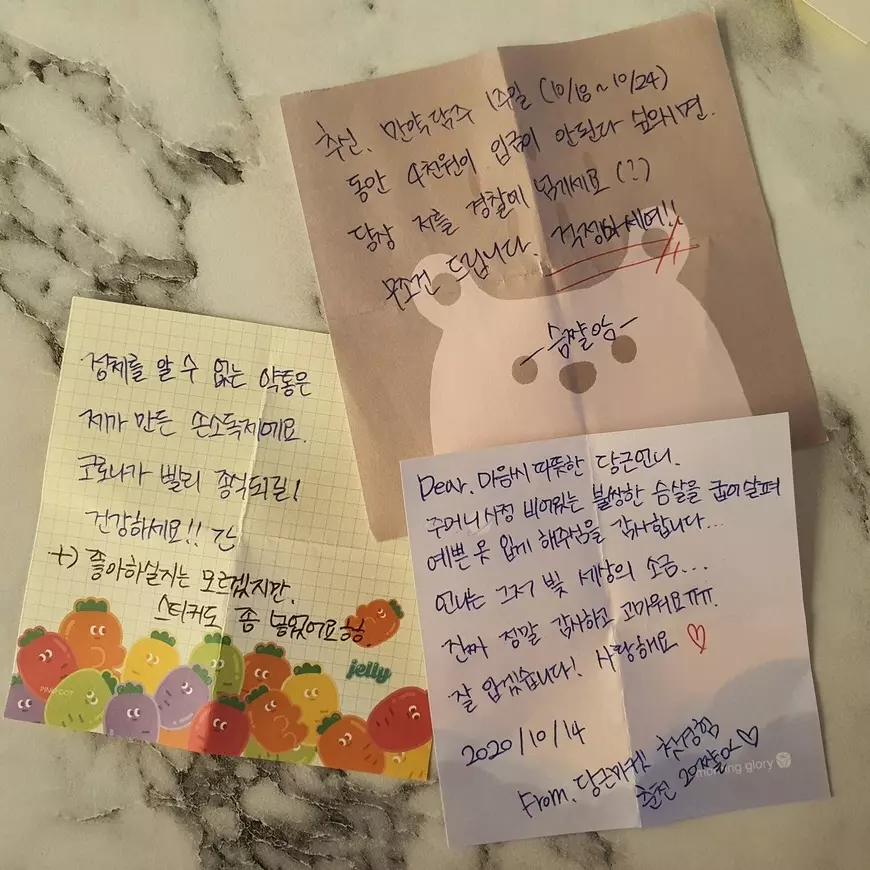 추신. 만약 담주 1주일 (10/18~10/24)
동안 4천원이 입금이 안된다 싶으시면.
당장 저를 경찰에 넘기세요 (?)
무조건 드립니다. 걱정마세여!!
-슴쨜앙-
정체를 알 수 없는 약통은
제가 만든 손소독제에요.
코로나가 빨리 종식되길!
건강하세요!!
+) 좋아하실지는 모르겠지만.
스티커도 좀 넣었어요ㅎㅎ.
jelly
PINKFOOT
Dear. 마음씨 따뜻한 당근언니.
주머니 사정 비어있는 불쌍한 슴살을 굽이 살펴
예쁜 옷 입게 해주심을 감사합니다...
언니는 그저 빛 세상의 소금...
진짜 정말 감사하고 고마워요ㅠㅠ.
잘 입겠습니다! 사랑해요 ♡
2020/10/14
From. 당근마켓
춘천 20쨜
morning glory